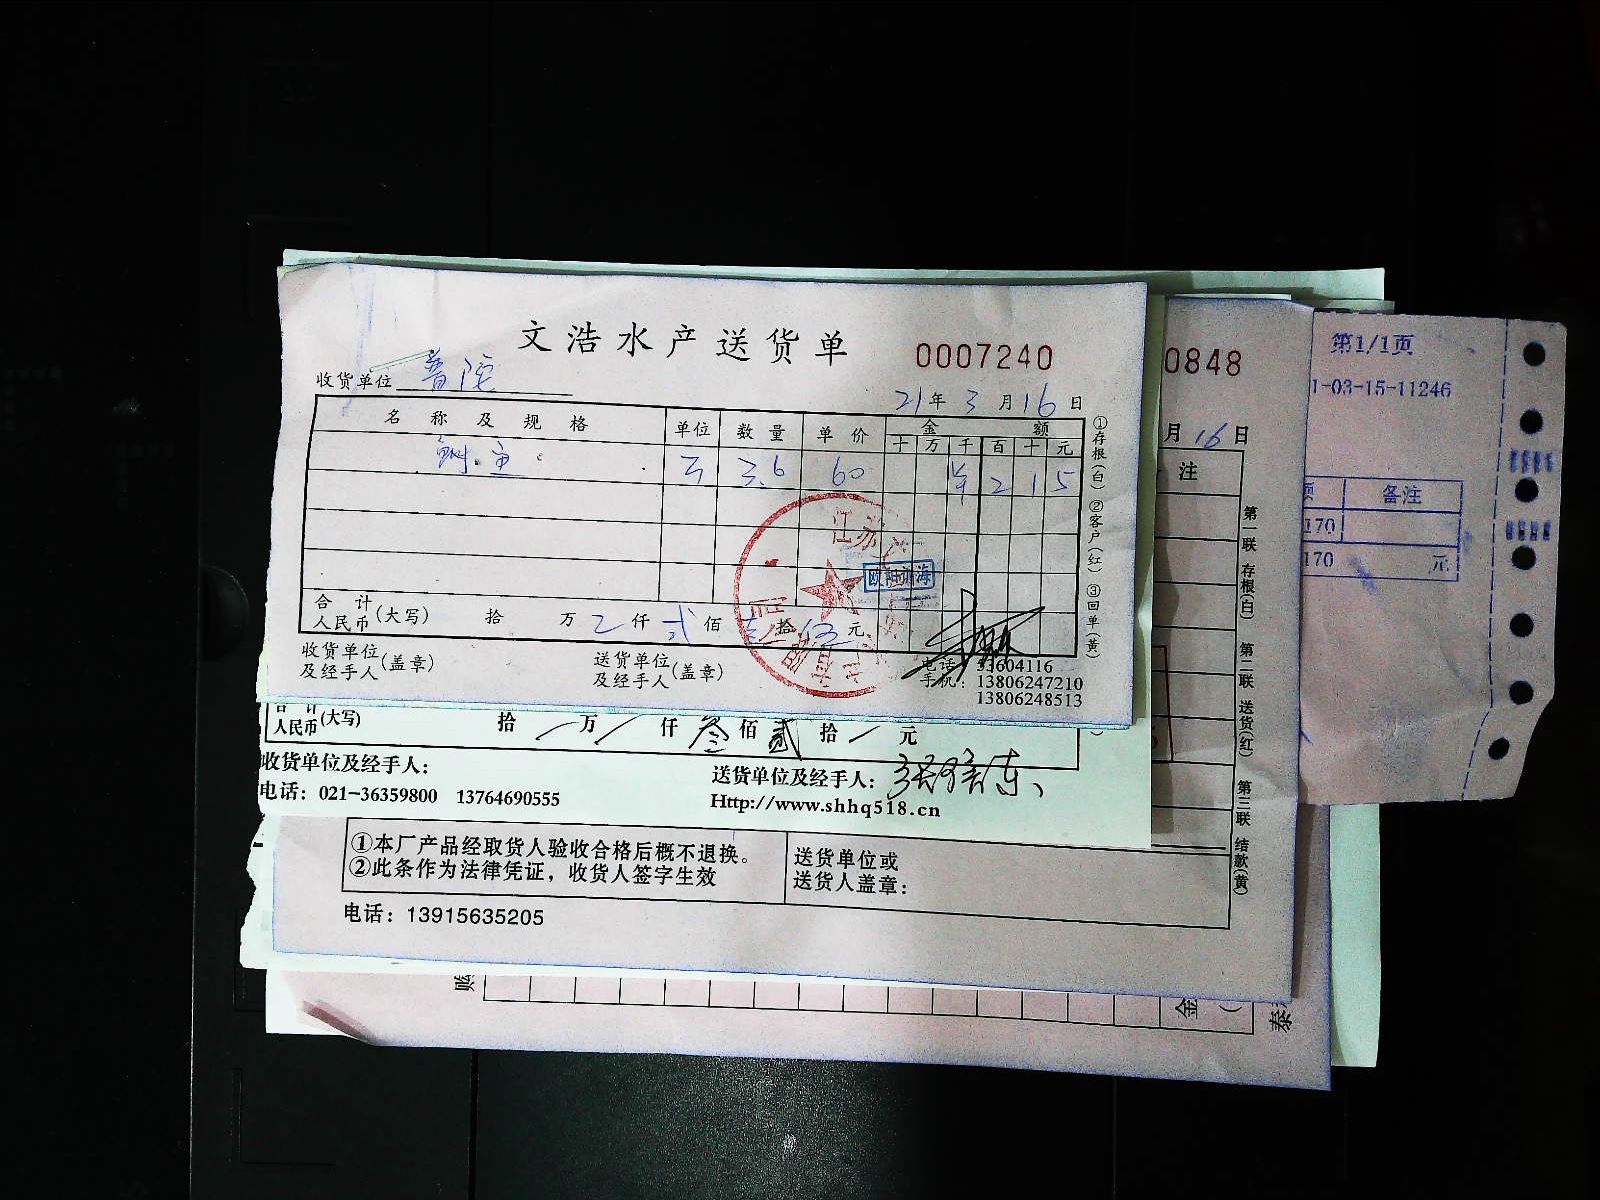 文浩水产送货单
0007240
收货单位 普陀
21年3月16日
名称及规格 单位 数量 单价 金额
十 万 千 百 十 元
3.6 60 ¥ 2 1 5
合计
人民币(大写) 拾 万 仟 贰 佰 拾 元
收货单位
及经手人(盖章)
送货单位
及经手人(盖章)
电话:53604116
手机:13806247210
13806248513
①存根(白) ②客户(红) ③回单(黄)
欧阳前海
合计
人民币(大写) 拾 万 仟 叁 佰 贰 拾 元
收货单位及经手人:
送货单位及经手人:
电话: 021-36359800 13764690555
Http://www.shhq518.cn
0848
月16日
注
第一联 存根(白) 第二联 送货(红) 第三联 结款(黄)
①本厂产品经取货人验收合格后概不退换。
②此条作为法律凭证，收货人签字生效
送货单位或
送货人盖章:
电话: 13915635205
第1/1页
1-03-15-11246
备注
170
170 元
金
泰